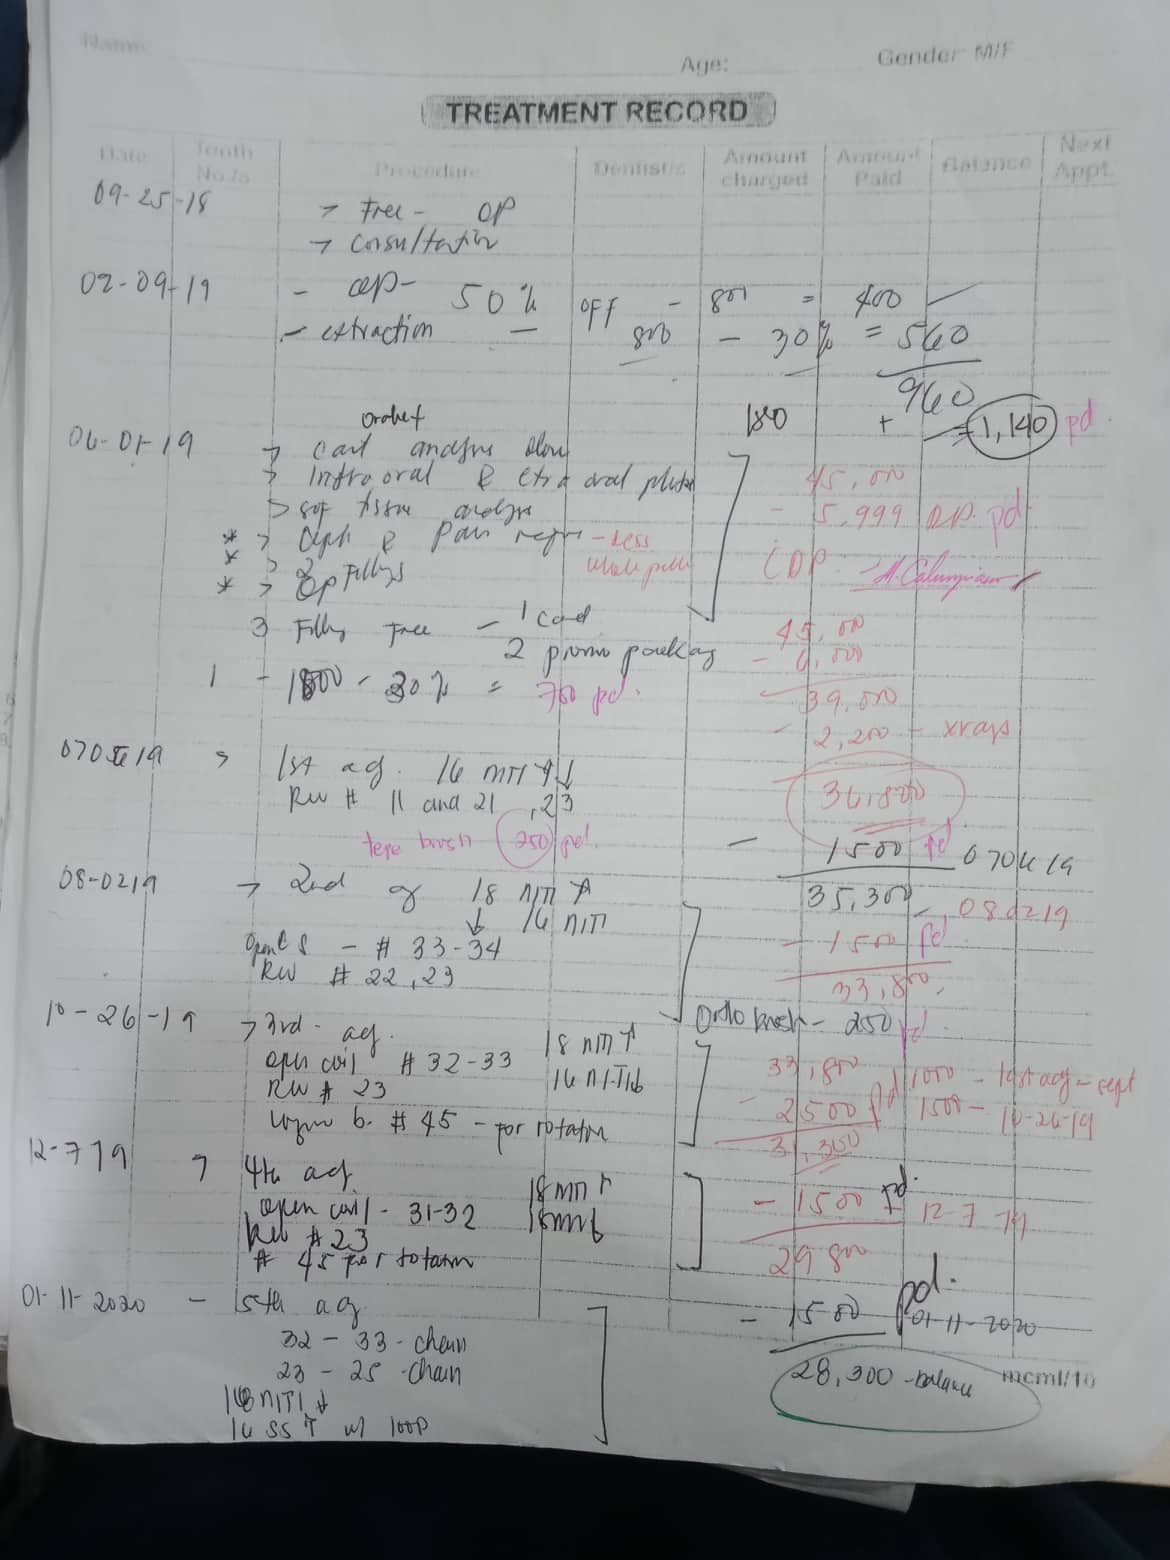 Name:
Age:
Gender M/F
TREATMENT RECORD
Date Tooth No./s Procedure Dentist/s Amount charged Amount Paid Balance Next Appt.
09-25-18 → Free - OP
→ Consultation
02-09-19 - OP - 50% OFF - 800 = 400
- extraction - 800 - 30% = 560
960
180 + = 1,140 pd.
06-01-19 →
→ Intra oral & extra oral
45,000
- 5,999 D.P. pd
* > Ceph & Pan - Less
* > 2 Fillings
* > OP
3 Filling Free - 1 card
2 promo package
45,000
- 6,000
39,000
1 - 30% = 700 pd.
- 2,200 - xrays
36,800
070619 > 1st adj. 16 NITI ↑↓
RW # 11 and 21, 23
tepe brush 250 pd.
- 1500 pd 070619
35,300
08-0219 → 2nd adj 18 NITI ↑
↓ 16 NITI
- 080219
- # 33-34
RW # 22, 23
- 1500 pd
33,800
Ortho brush - 250 pd.
10-26-19 → 3rd adj. 18 NITI ↑
open coil # 32-33 16 NITI
RW # 23
b. # 45 - for rotation
33,800
- 2500 pd
1000 - last adj - sept
1500 - 10-26-19
31,300
12-7-19 > 4th adj. 18 NITI ↑
open coil - 31-32
RW # 23
# 45 for rotation
- 1500 pd. 12-7-19
29,800
01-11-2020 - 5th adj
32 - 33 - chain
23 - 25 - chain
NITI ↓
16 SS ↑ w/ loop
- 1500 pd. 01-11-2020
28,300 - balance
mcml/10